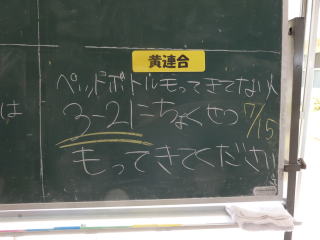 黄連合
ペットボトルもってきてない人
は
3-2に ちょくせつ 7/15
もってきてください